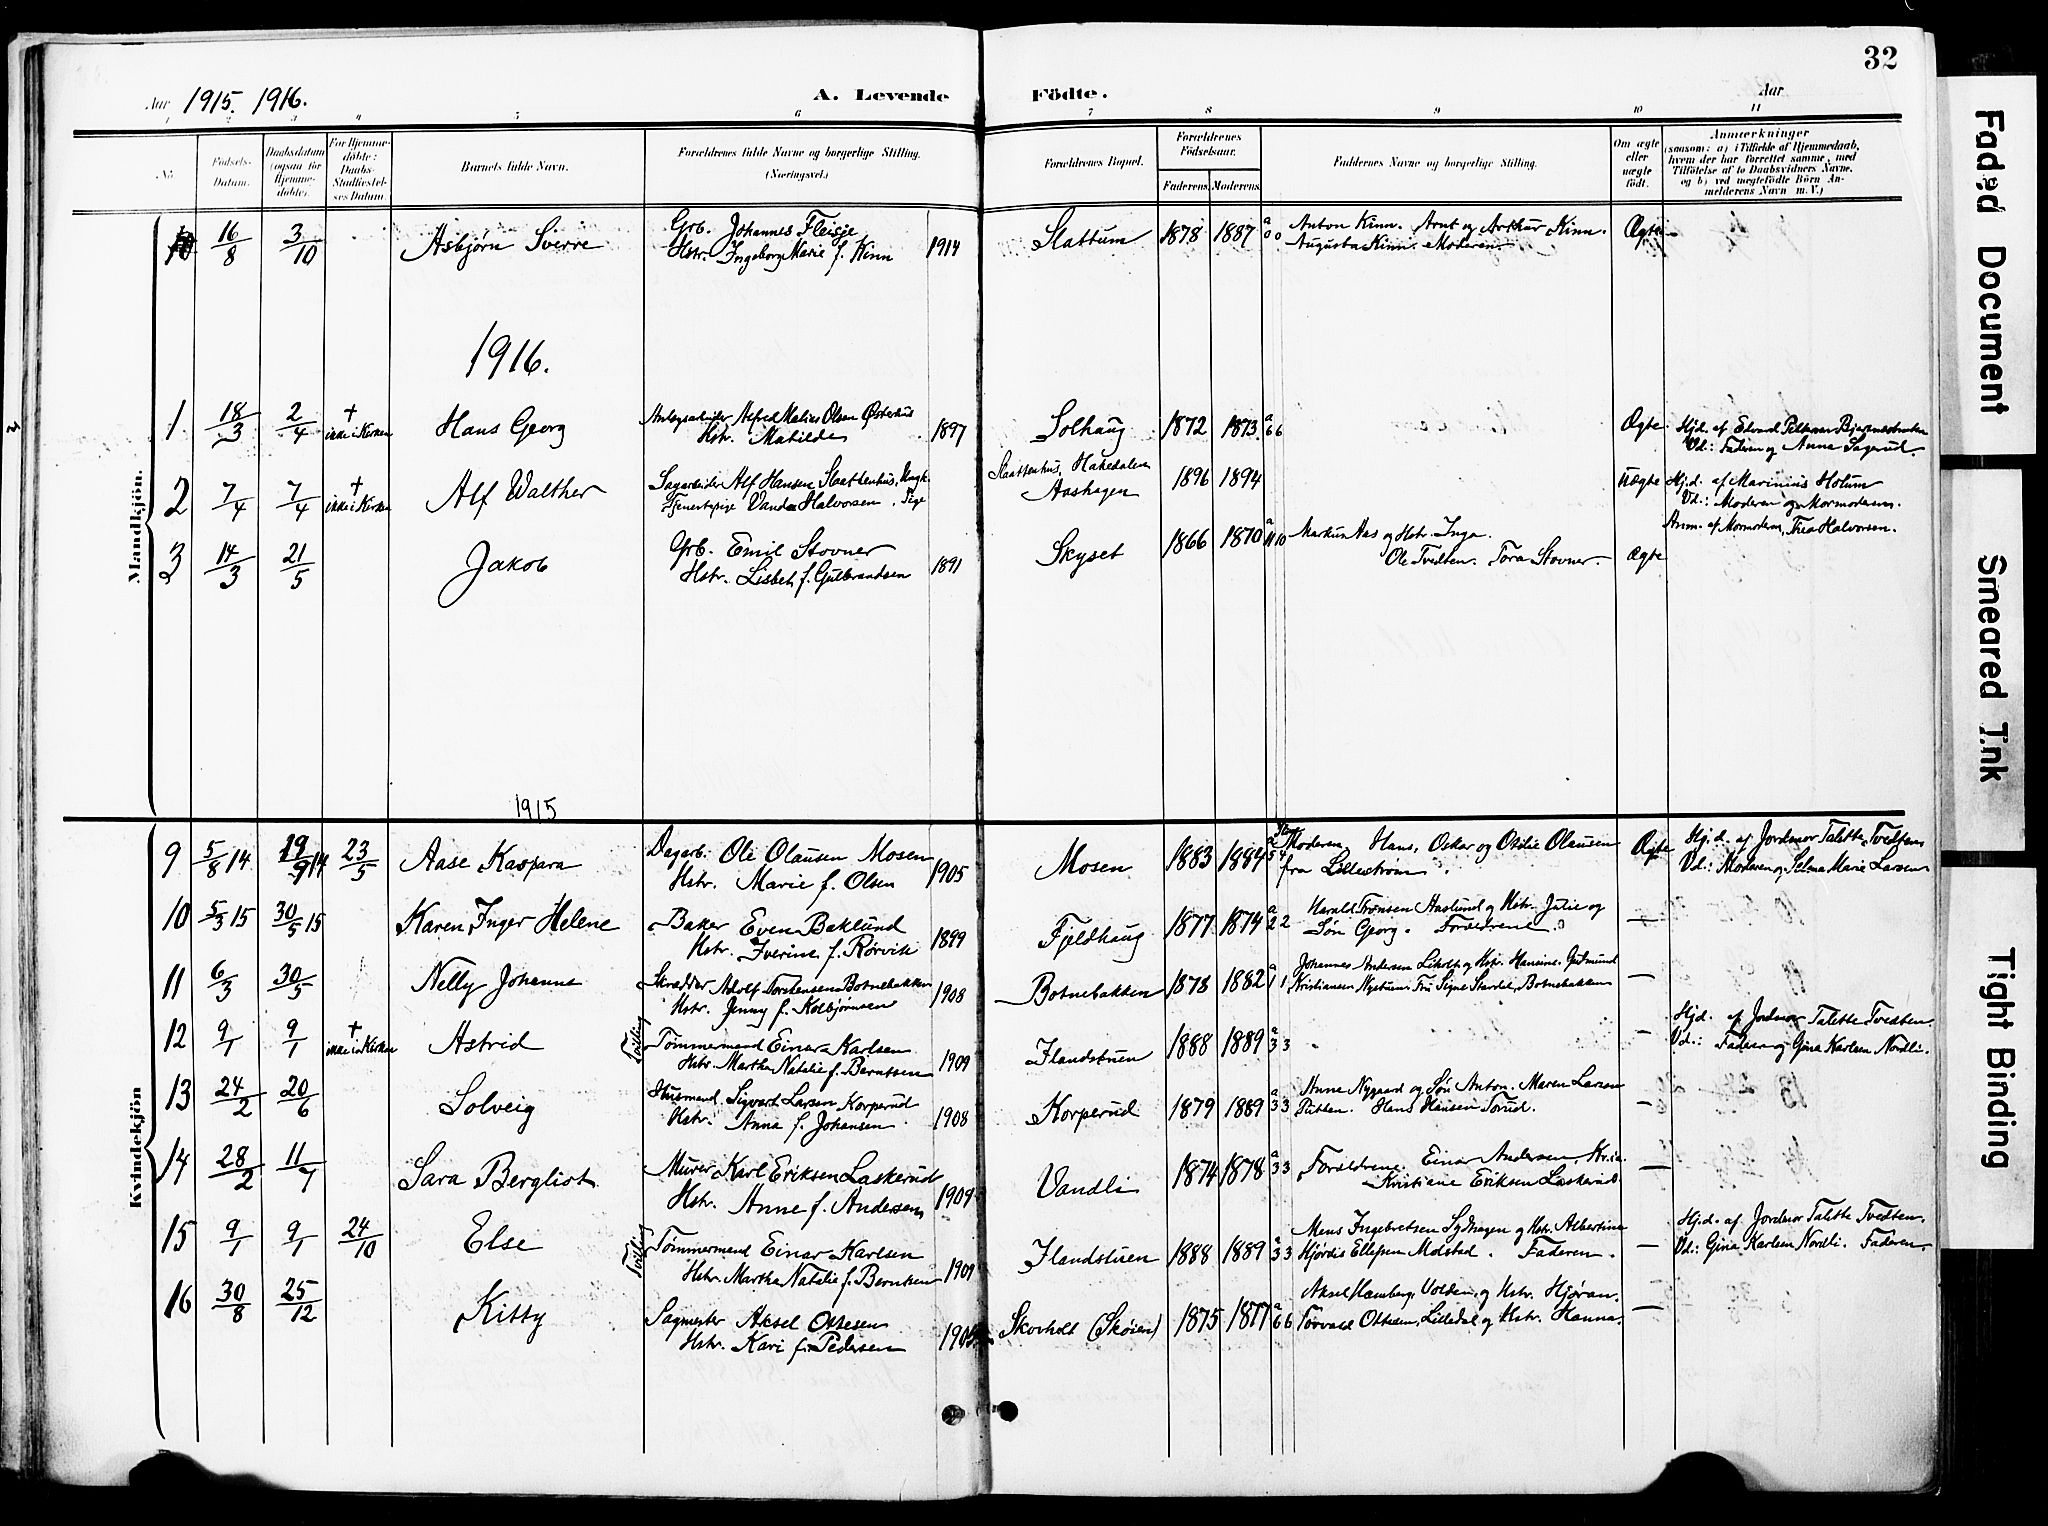 32
Aar 1915. 1916. A. Levende Födte. Aar
1 2 3 4 5 6 7 8 9 10 11
No. Fødsels-Datum. Daabsdatum (ogsaa for Hjemmedøbte). For Hjemmedøbte: Daabs-Stadfæstelses Datum. Barnets fulde Navn. Forældrenes fulde Navne og borgerlige Stilling. (Næringsvei.) Forældrenes Bopæl. Forældrenes Fødselsaar. Faderens. Moderens. Faddernes Navne og borgerlige Stilling. Om ægte eller uægte født. Anmærkninger (saasom: a) i Tilfælde af Hjemmedaab, hvem der har forrettet samme, med Tilføielse af to Daabsvidners Navne, og b) ved uægtefødte Börn Anmelderens Navn m. V.)
Mandkjön.
10 16/8 3/10 Asbjørn Sverre Grb. Johannes Fleisje 1914 Slattum 1878 1887 a 0 0 Anton Kinn. Arnt og Arthur Kinn. Ægte
Hstr. Ingeborg Marie f. Kinn Augusta Kinn. Moderen.
1916.
1 18/3 2/4 + ikke i Kirken Hans Georg Anlægsarbeider Alfred Matias Olsen Østerhus 1897 Solhaug 1872 1873 a 6 6 Ægte Hjd. af Edvard Pettersen
Hstr. Mathilde Vd.: Faderen og Anna Sagerud.
2 7/4 7/4 + ikke i Kirken Alf Walther Sagarbeider Alf Hansen Slaattenhus, Ungk. Slaattenhus, Hakedalen 1896 1894 Uægte Hj.d. af Marinius Holum
Tjenestepige Vanda Halvorsen. Pige Aashagen Vd.: Moderen og Mormoderen.
Anm. af Mormoderen, Thea Halvorsen.
3 14/3 21/5 Jakob Grb. Emil Stovner 1891 Skyset 1866 1870 a 11 10 Markus Aas og Hstr. Inga. Ægte
Hstr. Lisbet f. Gulbrandsen Ole Tvedten. Tora Stovner.
1915
Kvindekjön
9 5/8 14 19/9 14 23/5 Aase Kaspara Dagarb. Ole Olausen Mosen 1905 Mosen 1883 1884 a 5 4 Moderen, Hans, Oskar og Otilie Olausen Ægte Hjd. af Jordmor Talette Tvedten
Hstr. Marie f. Olsen fra Lillestrøm. Vd.: Moderen og Selma Marie Larsen
10 5/3 15 30/5 15 Karen Inger Helene Baker Even Baklund 1899 Fjeldhaug 1877 1874 a 2 2 Harald Tronsen Aaslund og Hstr. Julie og —
Hstr. Iverine f. Rørvik Søn Georg. Forældrene.
11 6/3 30/5 Nelly Johanne Skrædder Adolf Torstensen Botnebakken 1908 Botnebakken 1878 1882 a 1 1 Johannes Andersen og Hstr. Hansine. Gudmund —
Hstr. Jenny f. Kolbjørnsen Kristiansen Nystuen. Fru Signe Botnebakken
12 9/1 9/1 + ikke i Kirken Astrid Tvilling Tømmermand Einar Karlsen 1909 Flandstuen 1888 1889 a 3 3 — Hjd. af Jordmor Talette Tvedten.
Hstr. Martha Natalie f. Berntsen Vd.: Faderen og Gina Karlsen Nordli.
13 24/2 20/6 Solveig Husmand Sigvart Larsen Korperud 1908 Korperud 1879 1889 a 3 3 Anne Nygaard og Søn Anton. Maren Larsen —
Hstr. Anna f. Johansen Putten. Hans Hansen Torud.
14 28/2 11/7 Sara Bergliot Murer Karl Eriksen Laskerud 1909 Vandli 1874 1878 a 3 3 Forældrene. Einar Andersen, Kria. —
Hstr. Anne f. Andersen Kristiane Eriksen Laskerud.
15 9/1 9/1 24/10 Else Tvilling Tømmermand Einar Karlsen 1909 Flandstuen 1888 1889 a 3 3 Mens Ingebretsen Sydhagen og Hstr. Albertine — Hj.d. af Jordmor Talette Tvedten.
Hstr. Martha Natalie f. Berntsen Hjørdis Ellefsen Molstad. Faderen. Vd.: Gina Karlsen Nordli. Faderen.
16 30/8 25/12 Kitty Sagmester Aksel Ottesen Skovholt (Skøien) 1875 1877 a 6 6 Aksel Hamberg, Volden, og Hstr. Hjøran. —
Hstr. Kari f. Pedersen Torvald Ottesen, Lilledal og Hstr. Hanna.
Faded Document
Smeared Ink
Tight Binding